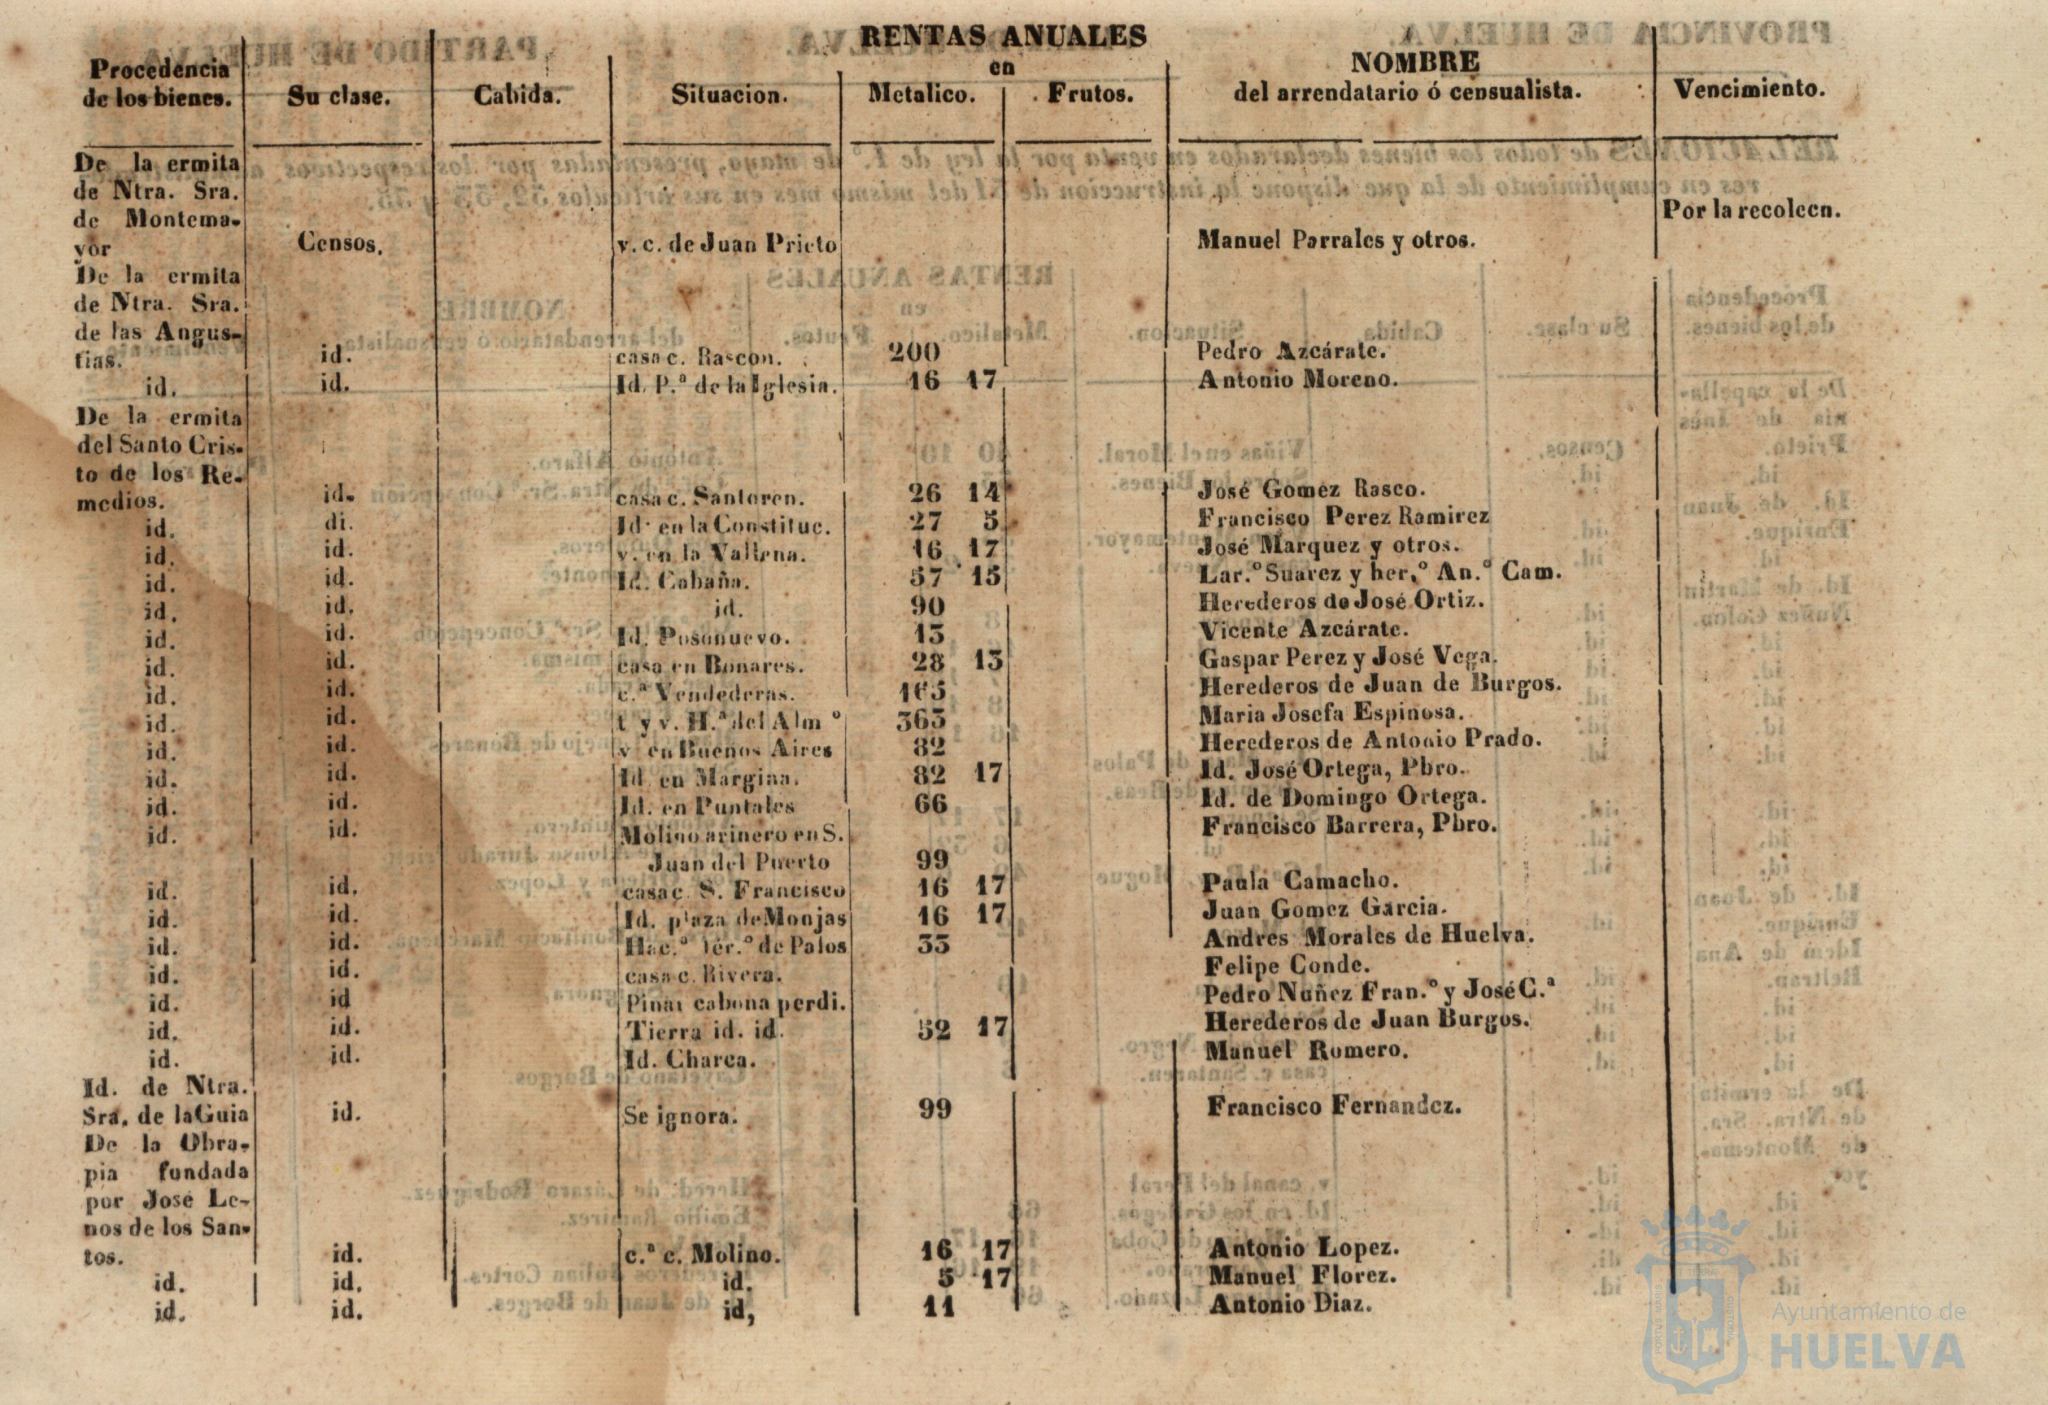 RENTAS ANUALES
en
Procedencia de los bienes. Su clase. Cabida. Situacion. Metalico. Frutos. NOMBRE del arrendatario ó censualista. Vencimiento.
De la ermita
de Ntra. Sra.
de Montema-
yor Censos. v. c. de Juan Prieto Manuel Parrales y otros. Por la recolecn.
De la ermita
de Ntra. Sra.
de las Angus-
tias. id. casa c. Rascon. 200 Pedro Azcárate.
id. id. Id. P.ª de la Iglesia. 16 17 Antonio Moreno.
De la ermita
del Santo Cris-
to de los Re-
medios. id. casa c. Santoren. 26 14 José Gomez Rasco.
id. di. Id. en la Constituc. 27 5 Francisco Perez Ramirez
id. id. v. en la Vallena. 16 17 José Marquez y otros.
id. id. Id. Cabaña. 57 15 Lar.º Suarez y her.º An.º Cam.
id. id. id. 90 Herederos de José Ortiz.
id. id. Id. Posonuevo. 13 Vicente Azcárate.
id. id. casa en Bonares. 28 13 Gaspar Perez y José Vega.
id. id. c.ª Vendederas. 165 Herederos de Juan de Burgos.
id. id. t y v. H.ª del Alm º 363 Maria Josefa Espinosa.
id. id. v en Buenos Aires 82 Herederos de Antonio Prado.
id. id. Id en Margina. 82 17 Id. José Ortega, Pbro.
id. id. Id. en Puntales 66 Id. de Domingo Ortega.
id. id. Molino arinero en S. Francisco Barrera, Pbro.
Juan del Puerto 99
id. id. casa c. S. Francisco 16 17 Paula Camacho.
id. id. Id. plaza de Monjas 16 17 Juan Gomez Garcia.
id. id. Hac.º Tér.º de Palos 33 Andres Morales de Huelva.
id. id. casa c. Rivera. Felipe Conde.
id. id Pinar cabona perdi. Pedro Nuñez Fran.º y José C.ª
id. id. Tierra id. id. 52 17 Herederos de Juan Burgos.
id. id. Id. Charca. Manuel Romero.
Id. de Ntra.
Sra. de la Guia id. Se ignora. 99 Francisco Fernandez.
De la Obra-
pia fundada
por José Le-
nos de los San-
tos. id. c.ª c. Molino. 16 17 Antonio Lopez.
id. id. id. 5 17 Manuel Florez.
id. id. id, 11 Antonio Diaz.
Ayuntamiento de
HUELVA